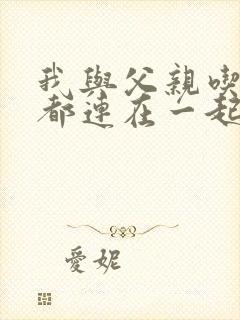 我與父親喫
都連在一起
愛妮